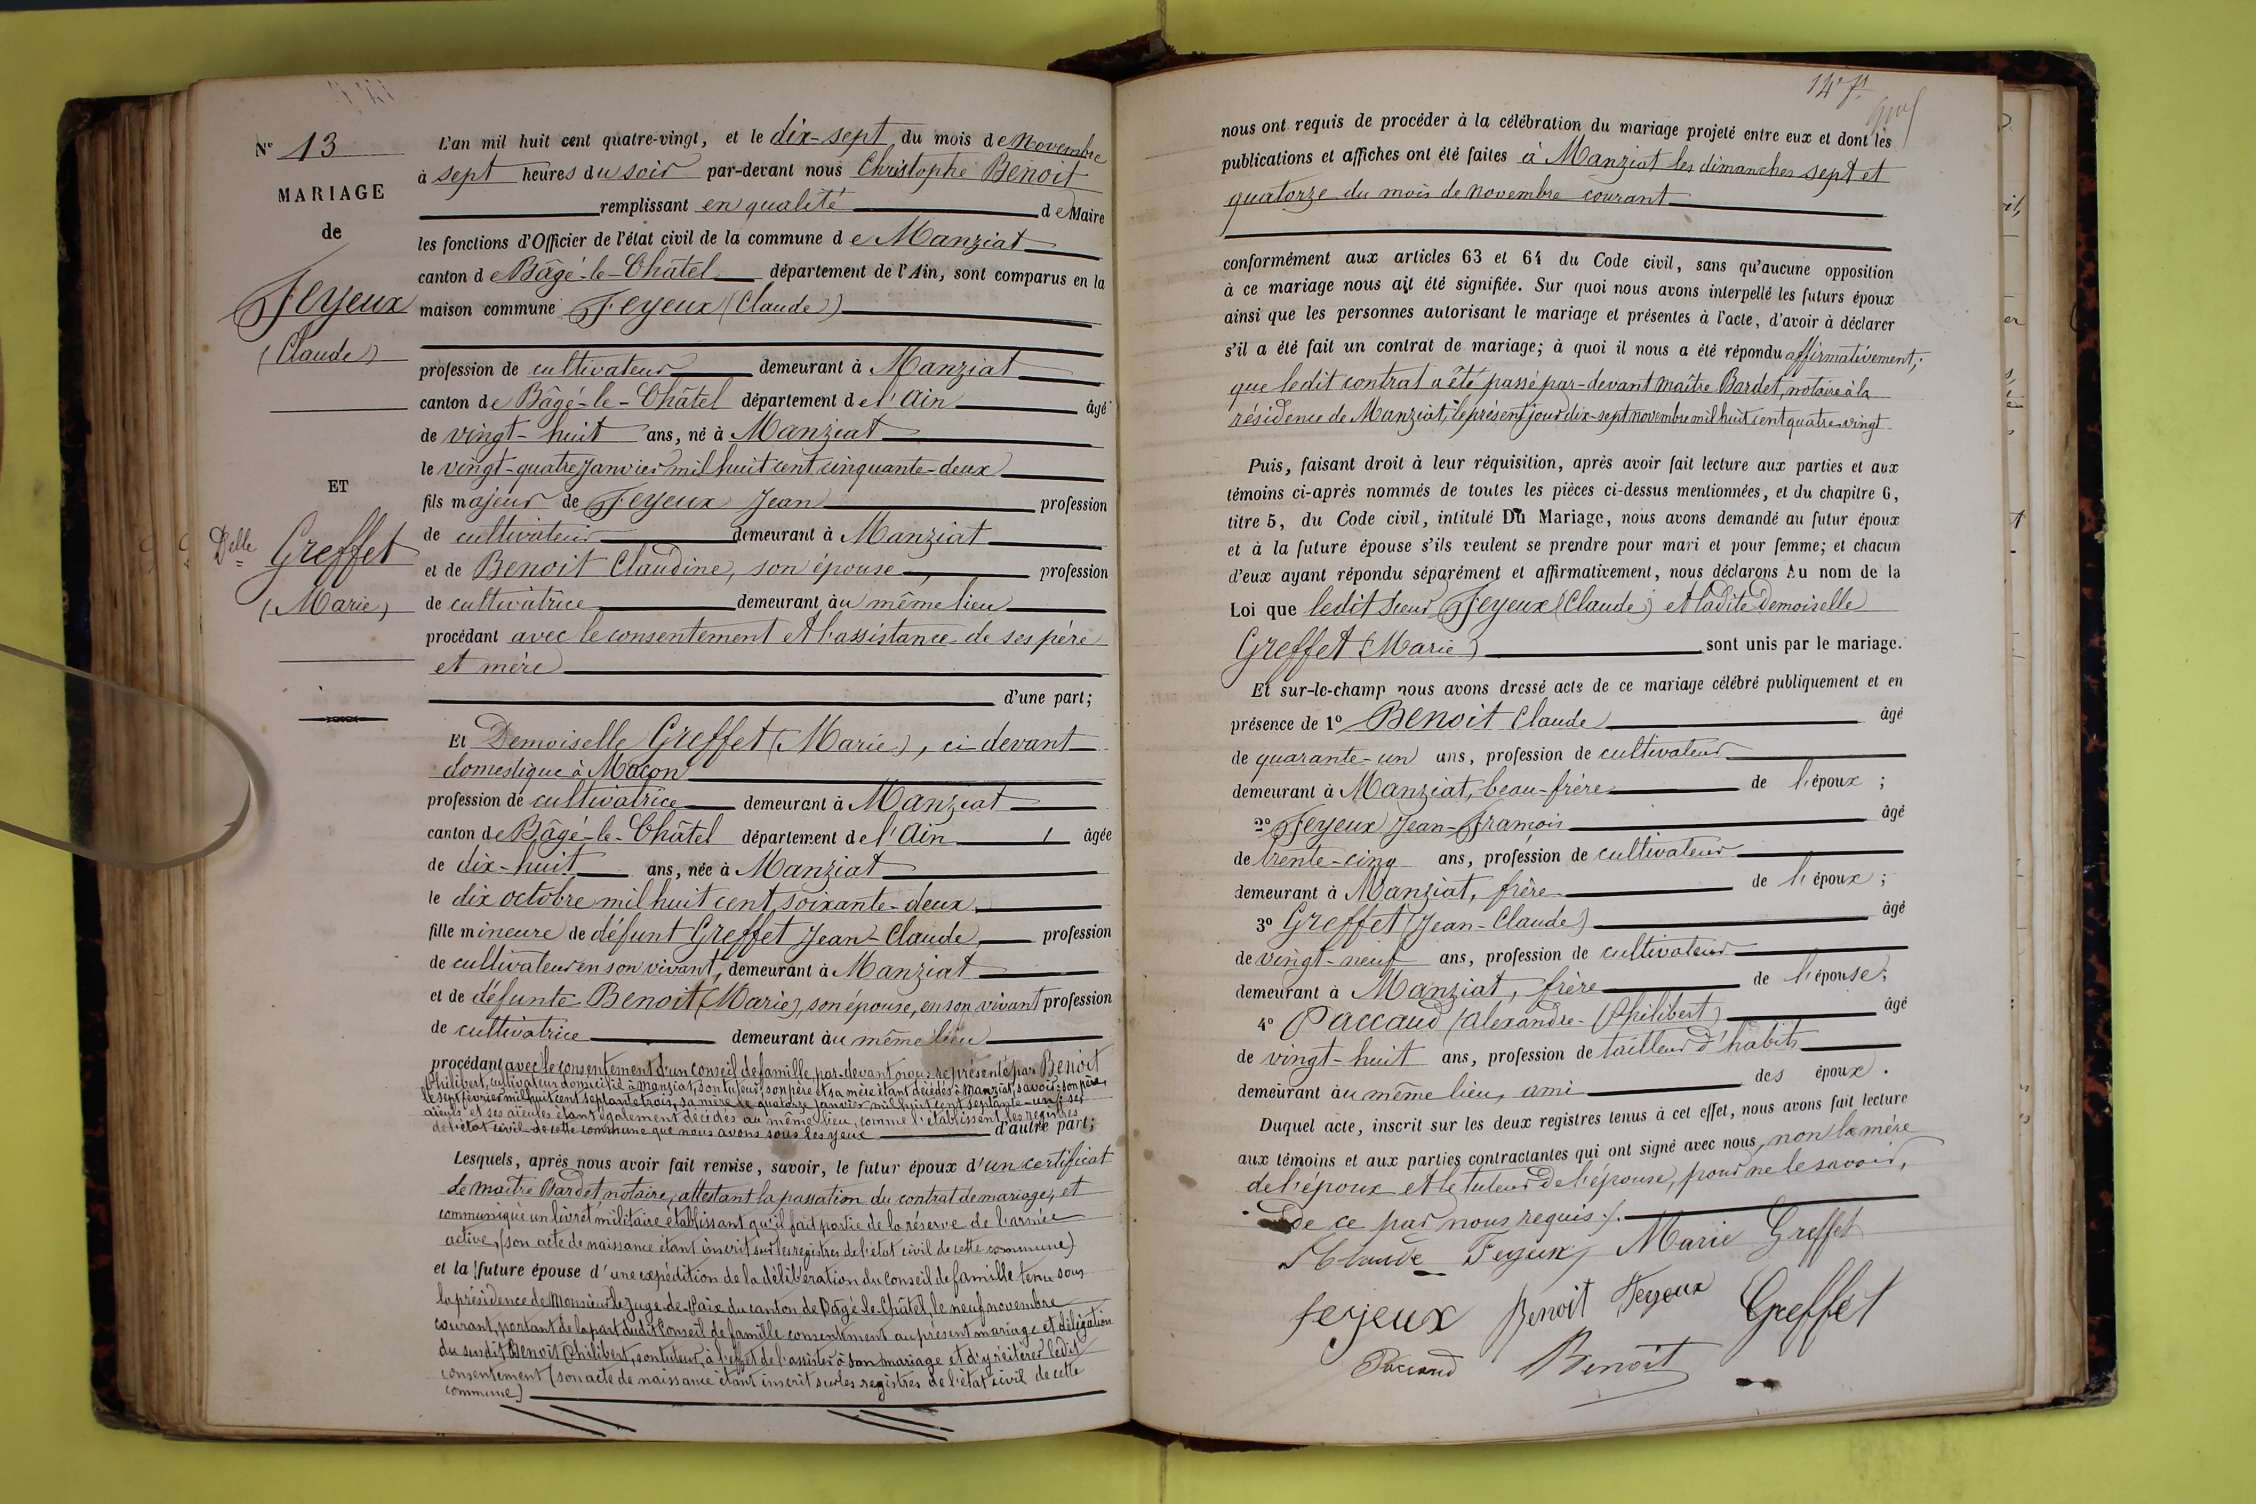 N° 13
MARIAGE
de
Feyeux
(Claude)
ET
Delle Greffet
(Marie)
L'an mil huit cent quatre-vingt, et le dix-sept du mois de Novembre
à sept heures du soir par-devant nous Christophe Benoit
remplissant en qualité de Maire
les fonctions d'Officier de l'état civil de la commune de Manziat
canton de Bâgé-le-Châtel département de l'Ain, sont comparus en la
maison commune Feyeux (Claude)
profession de cultivateur demeurant à Manziat
canton de Bâgé-le-Châtel département de l'Ain âgé
de vingt-huit ans, né à Manziat
le vingt-quatre Janvier mil huit cent cinquante-deux
fils majeur de Feyeux Jean profession
de cultivateur demeurant à Manziat
et de Benoit Claudine, son épouse, profession
de cultivatrice demeurant au même lieu
procédant avec le consentement et l'assistance de ses père
et mère
d'une part;
Et Demoiselle Greffet (Marie), ci devant
domestique à Mâcon
profession de cultivatrice demeurant à Manziat
canton de Bâgé-le-Châtel département de l'Ain âgée
de dix-huit ans, née à Manziat
le dix octobre mil huit cent soixante-deux,
fille mineure de défunt Greffet Jean-Claude, profession
de cultivateur en son vivant, demeurant à Manziat
et de défunte Benoit (Marie), son épouse, en son vivant profession
de cultivatrice demeurant au même lieu
procédant avec le consentement d'un conseil de famille par-devant nous représenté par Benoit
Philibert, cultivateur domicilié à Manziat, son tuteur, son père et sa mère étant décédés à Manziat, savoir: son père,
le sept février mil huit cent septante trois, sa mère le quatorze janvier mil huit cent septante-un; ses
aïeuls et ses aïeules étant également décédés au même lieu, comme l'établissent les registres
de l'état civil de cette commune que nous avons sous les yeux d'autre part;
Lesquels, après nous avoir fait remise, savoir, le futur époux d'un certificat
de maître Bardet notaire, attestant la passation du contrat de mariage, et
communiqué un livret militaire établissant qu'il fait partie de la réserve de l'armée
active, (son acte de naissance étant inscrit sur les registres de l'état civil de cette commune)
et la future épouse d'une expédition de la délibération du conseil de famille tenu sous
la présidence de Monsieur le Juge de Paix du canton de Bâgé-le-Châtel, le neuf novembre
courant, portant de la part dudit Conseil de famille consentement au présent mariage et délégation
du susdit Benoit Philibert, son tuteur, à l'effet de l'assister à son mariage et d'y réitérer ledit
consentement (son acte de naissance étant inscrit sur les registres de l'état civil de cette
commune)
14e f.
nous ont requis de procéder à la célébration du mariage projeté entre eux et dont les
publications et affiches ont été faites à Manziat les dimanches sept et
quatorze du mois de novembre courant
conformément aux articles 63 et 64 du Code civil, sans qu'aucune opposition
à ce mariage nous ait été signifiée. Sur quoi nous avons interpellé les futurs époux
ainsi que les personnes autorisant le mariage et présentes à l'acte, d'avoir à déclarer
s'il a été fait un contrat de mariage; à quoi il nous a été répondu affirmativement;
que ledit contrat a été passé par-devant maître Bardet, notaire à la
résidence de Manziat, le présent jour dix-sept novembre mil huit cent quatre-vingt
Puis, faisant droit à leur réquisition, après avoir fait lecture aux parties et aux
témoins ci-après nommés de toutes les pièces ci-dessus mentionnées, et du chapitre 6,
titre 5, du Code civil, intitulé Du Mariage, nous avons demandé au futur époux
et à la future épouse s'ils veulent se prendre pour mari et pour femme; et chacun
d'eux ayant répondu séparément et affirmativement, nous déclarons Au nom de la
Loi que ledit Sieur Feyeux (Claude) et ladite Demoiselle
Greffet (Marie) sont unis par le mariage.
Et sur-le-champ nous avons dressé acte de ce mariage célébré publiquement et en
présence de 1° Benoit Claude âgé
de quarante-un ans, profession de cultivateur
demeurant à Manziat, beau-frère de l'époux;
2° Feyeux Jean-François âgé
de trente-cinq ans, profession de cultivateur
demeurant à Manziat, frère de l'époux;
3° Greffet (Jean-Claude) âgé
de vingt-neuf ans, profession de cultivateur
demeurant à Manziat, frère de l'épouse;
4° Paccaud (Alexandre-Philibert) âgé
de vingt-huit ans, profession de tailleur d'habits
demeurant au même lieu, ami des époux.
Duquel acte, inscrit sur les deux registres tenus à cet effet, nous avons fait lecture
aux témoins et aux parties contractantes qui ont signé avec nous, non la mère
de l'époux et le tuteur de l'épouse, pour ne le savoir,
de ce par nous requis.
Claude Feyeux Marie Greffet
feyeux Benoit Feyeux Greffet
Paccaud Benoit